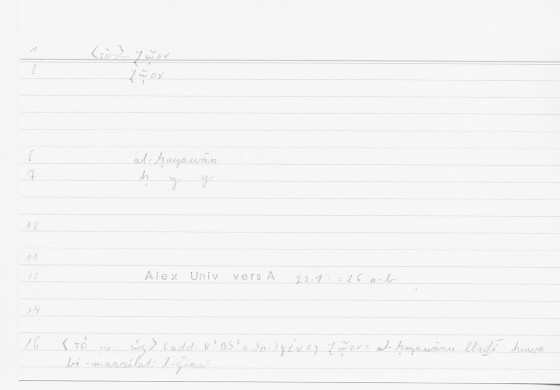 1 〈τὸ〉 ζῷον
2 ζῷον
6 al-ḥayawān
7 ḥ y y
10
11
12 Alex Univ vers A 22.1 = 26 a-b
14
16 〈τὸ ... ὡς〉 (add. V²BS²a Sn. γένος) ζῷον: al-ḥayawānu lladī huwa
bi-manzilati l-ǧinsi